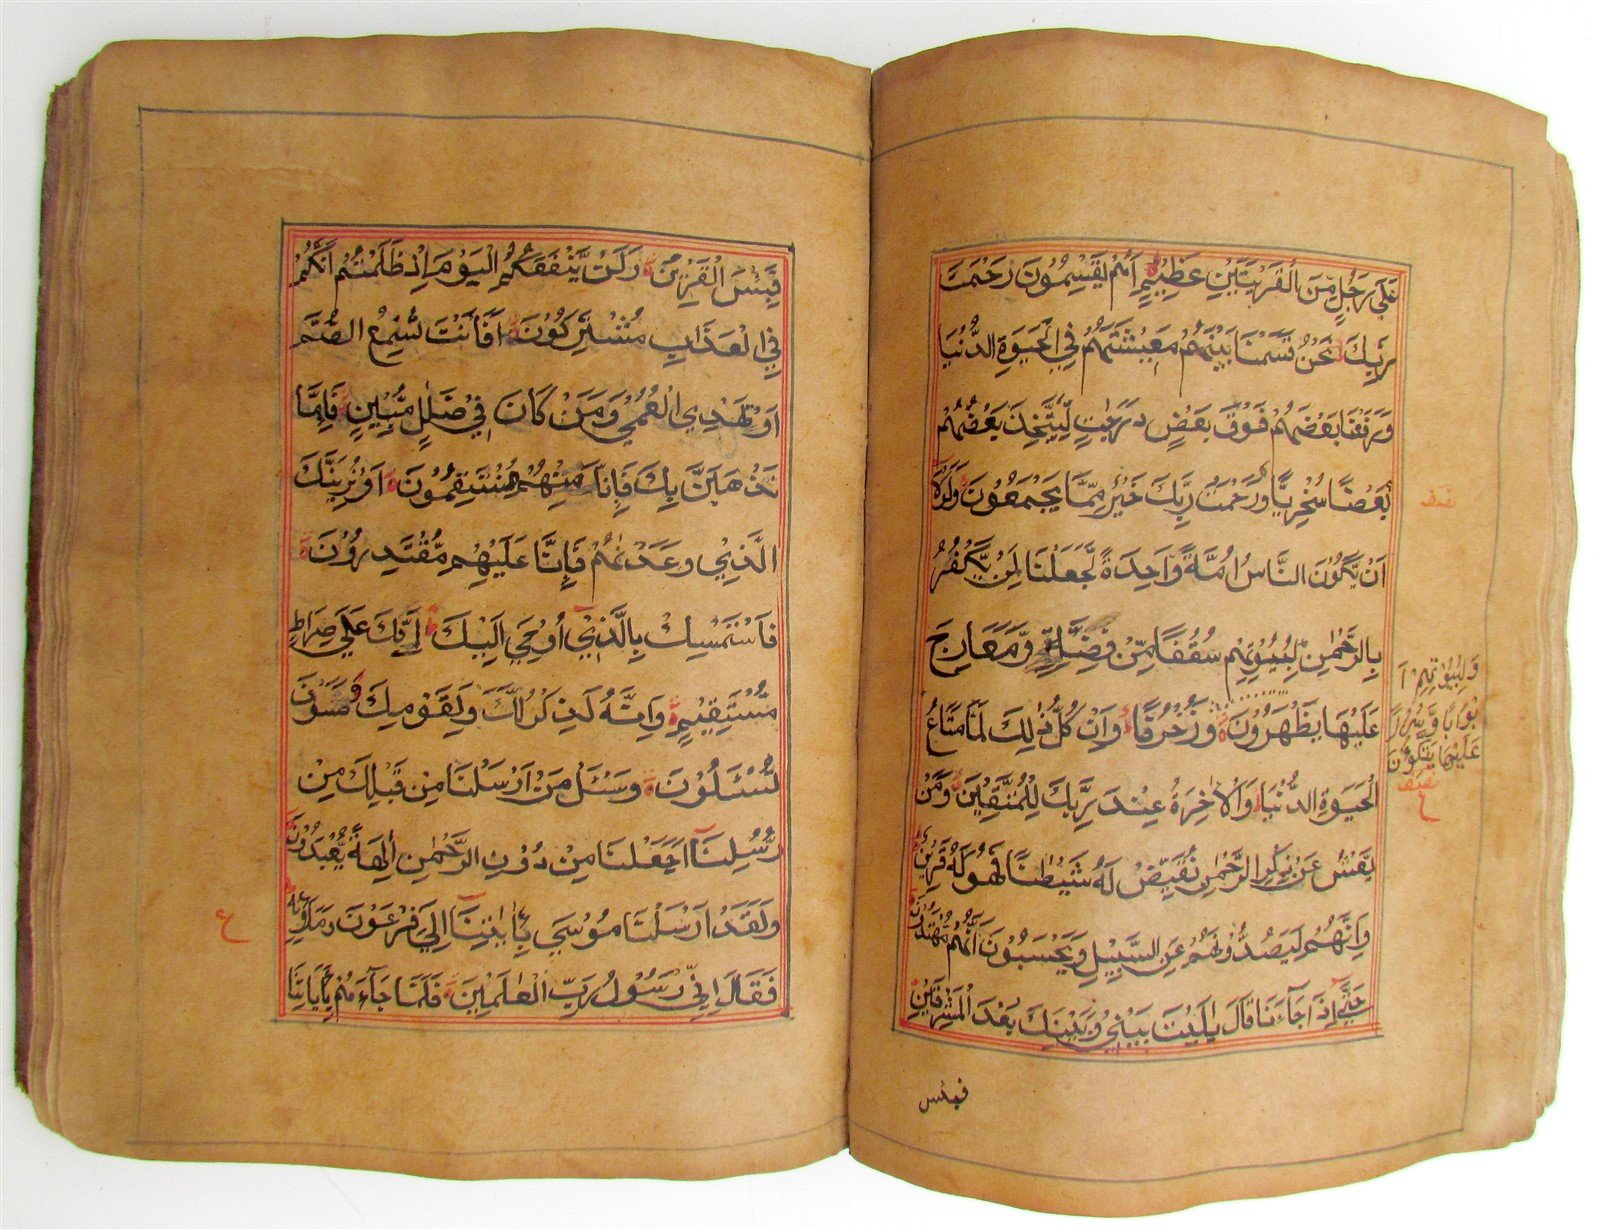 عَلَىٰ رَجُلٍ مِّنَ الْقَرْيَتَيْنِ عَظِيْمٍ اَهُمْ يَقْسِمُوْنَ رَحْمَتَ
رَبِّكَ نَحْنُ قَسَمْنَا بَيْنَهُمْ مَعِيْشَتَهُمْ فِي الْحَيٰوةِ الدُّنْيَا
وَرَفَعْنَا بَعْضَهُمْ فَوْقَ بَعْضٍ دَرَجٰتٍ لِّيَتَّخِذَ بَعْضُهُمْ
بَعْضًا سُخْرِيًّا وَرَحْمَتُ رَبِّكَ خَيْرٌ مِّمَّا يَجْمَعُوْنَ وَلَوْلَا
اَنْ يَّكُوْنَ النَّاسُ اُمَّةً وَّاحِدَةً لَّجَعَلْنَا لِمَنْ يَّكْفُرُ
بِالرَّحْمٰنِ لِبُيُوْتِهِمْ سُقُفًا مِّنْ فِضَّةٍ وَّمَعَارِجَ
عَلَيْهَا يَظْهَرُوْنَ وَزُخْرُفًا وَاِنْ كُلُّ ذٰلِكَ لَمَّا مَتَاعُ
الْحَيٰوةِ الدُّنْيَا وَالْاٰخِرَةُ عِنْدَ رَبِّكَ لِلْمُتَّقِيْنَ وَمَنْ
يَّعْشُ عَنْ ذِكْرِ الرَّحْمٰنِ نُقَيِّضْ لَهُ شَيْطٰنًا فَهُوَ لَهُ قَرِيْنٌ
وَاِنَّهُمْ لَيَصُدُّوْنَهُمْ عَنِ السَّبِيْلِ وَيَحْسَبُوْنَ اَنَّهُمْ مُّهْتَدُوْنَ
حَتّٰى اِذَا جَآءَنَا قَالَ يٰلَيْتَ بَيْنِيْ وَبَيْنَكَ بُعْدَ الْمَشْرِقَيْنِ
وَلِبُيُوْتِهِمْ اَ
بْوَابًا وَّسُرُرًا
عَلَيْهَا يَتَّكِـُٔوْنَ
فبئس
فَبِئْسَ الْقَرِيْنُ وَلَنْ يَّنْفَعَكُمُ الْيَوْمَ اِذْ ظَلَمْتُمْ اَنَّكُمْ
فِي الْعَذَابِ مُشْتَرِكُوْنَ اَفَاَنْتَ تُسْمِعُ الصُّمَّ
اَوْ تَهْدِي الْعُمْيَ وَمَنْ كَانَ فِيْ ضَلٰلٍ مُّبِيْنٍ فَاِمَّا
نَذْهَبَنَّ بِكَ فَاِنَّا مِنْهُمْ مُّنْتَقِمُوْنَ اَوْ نُرِيَنَّكَ
الَّذِيْ وَعَدْنٰهُمْ فَاِنَّا عَلَيْهِمْ مُّقْتَدِرُوْنَ
فَاسْتَمْسِكْ بِالَّذِيْ اُوْحِيَ اِلَيْكَ اِنَّكَ عَلٰى صِرَاطٍ
مُّسْتَقِيْمٍ وَاِنَّهُ لَذِكْرٌ لَّكَ وَلِقَوْمِكَ وَسَوْفَ
تُسْـَٔلُوْنَ وَسْـَٔلْ مَنْ اَرْسَلْنَا مِنْ قَبْلِكَ مِنْ
رُّسُلِنَا اَجَعَلْنَا مِنْ دُوْنِ الرَّحْمٰنِ اٰلِهَةً يُّعْبَدُوْنَ
وَلَقَدْ اَرْسَلْنَا مُوْسٰى بِاٰيٰتِنَا اِلٰى فِرْعَوْنَ وَمَلَا۟ئِهِ
فَقَالَ اِنِّيْ رَسُوْلُ رَبِّ الْعٰلَمِيْنَ فَلَمَّا جَآءَهُمْ بِاٰيَاتِنَا
ع